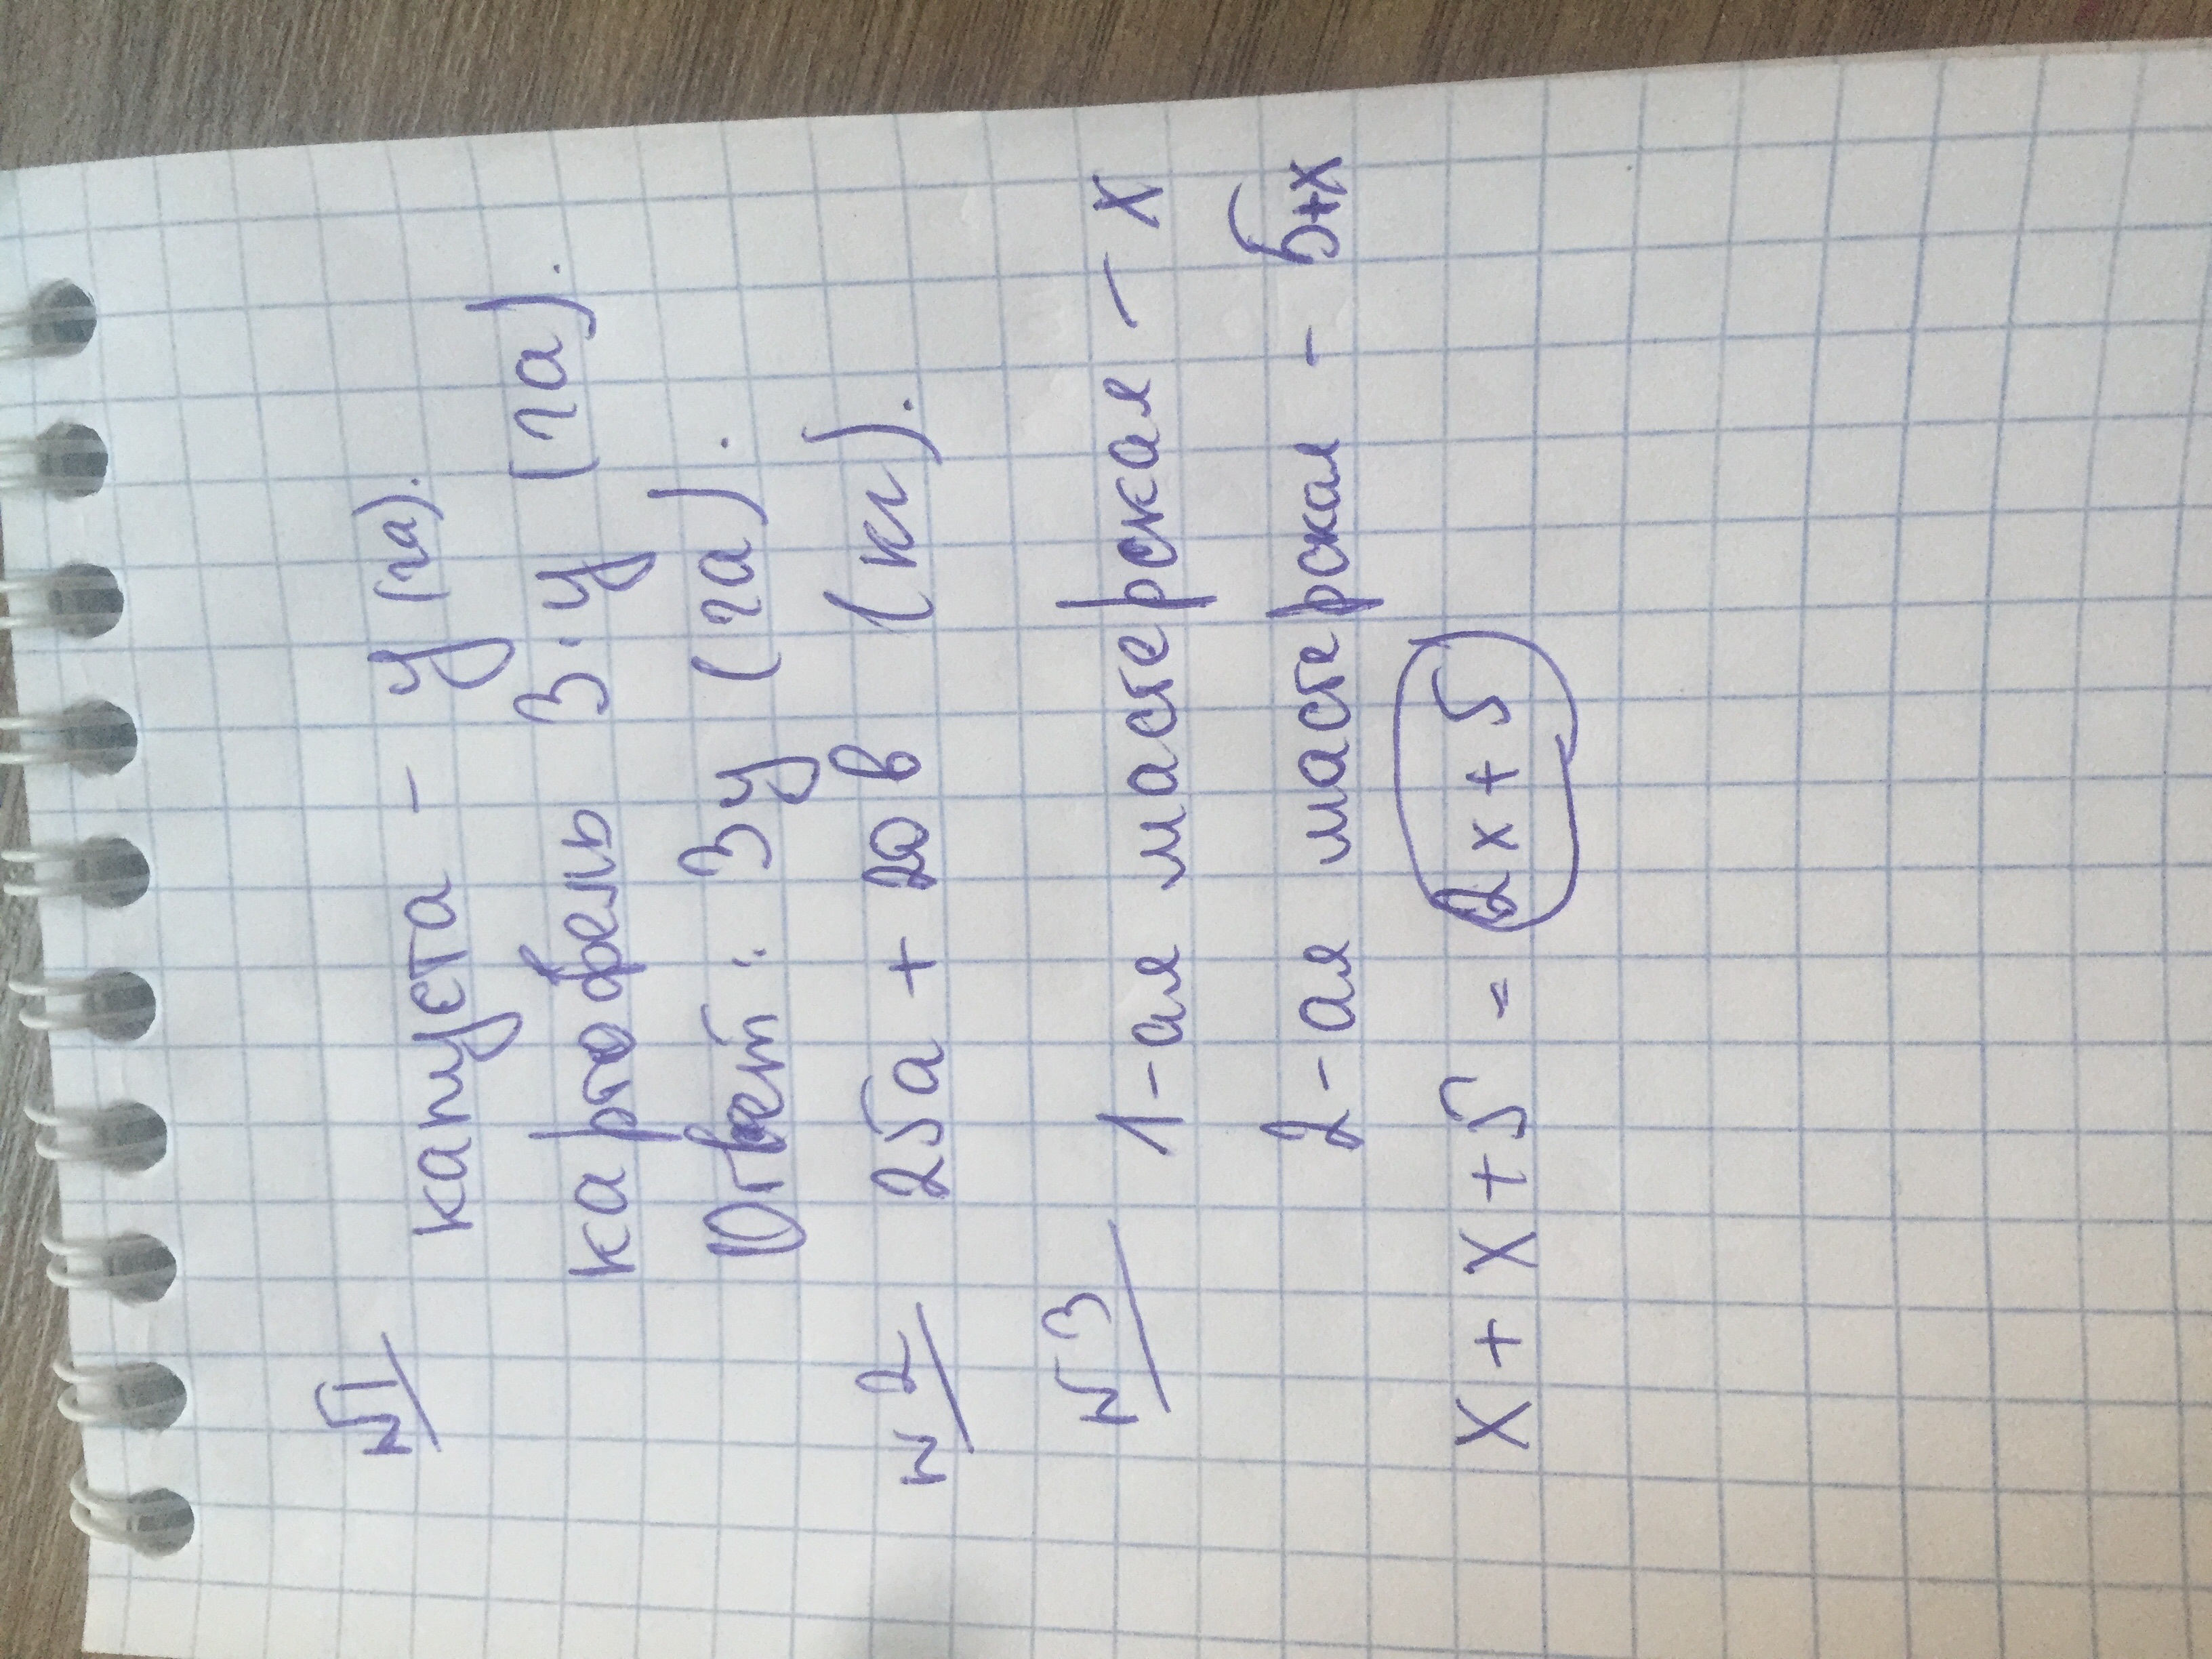 №1
капуста - у (га).
картофель 3·у (га).
Ответ: 3у (га).
№2 25а + 20в (кг).
№3
1-ая мастерская - х
2-ая мастерская - 5+х
х + х + 5 = 2х + 5